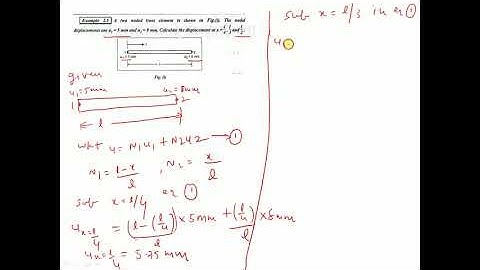 Example 2.3 A two noded truss element is shown in Fig.(i). The nodal
displacements are u₁ = 5 mm and u₂ = 8 mm. Calculate the displacement at x = l/4, l/3 and l/2.
Fig. (i)
given
u₁=5mm u₂=8mm
1 2
l
wkt u = N₁u₁ + N₂u₂ → ①
N₁ = l-x/l , N₂ = x/l
sub x = l/4 eq ①
u x=l/4 = (l-(l/4))/l × 5 mm + (l/4)/l × 8 mm
u x=l/4 = 5.75 mm
sub x = l/3 in eq ①
u